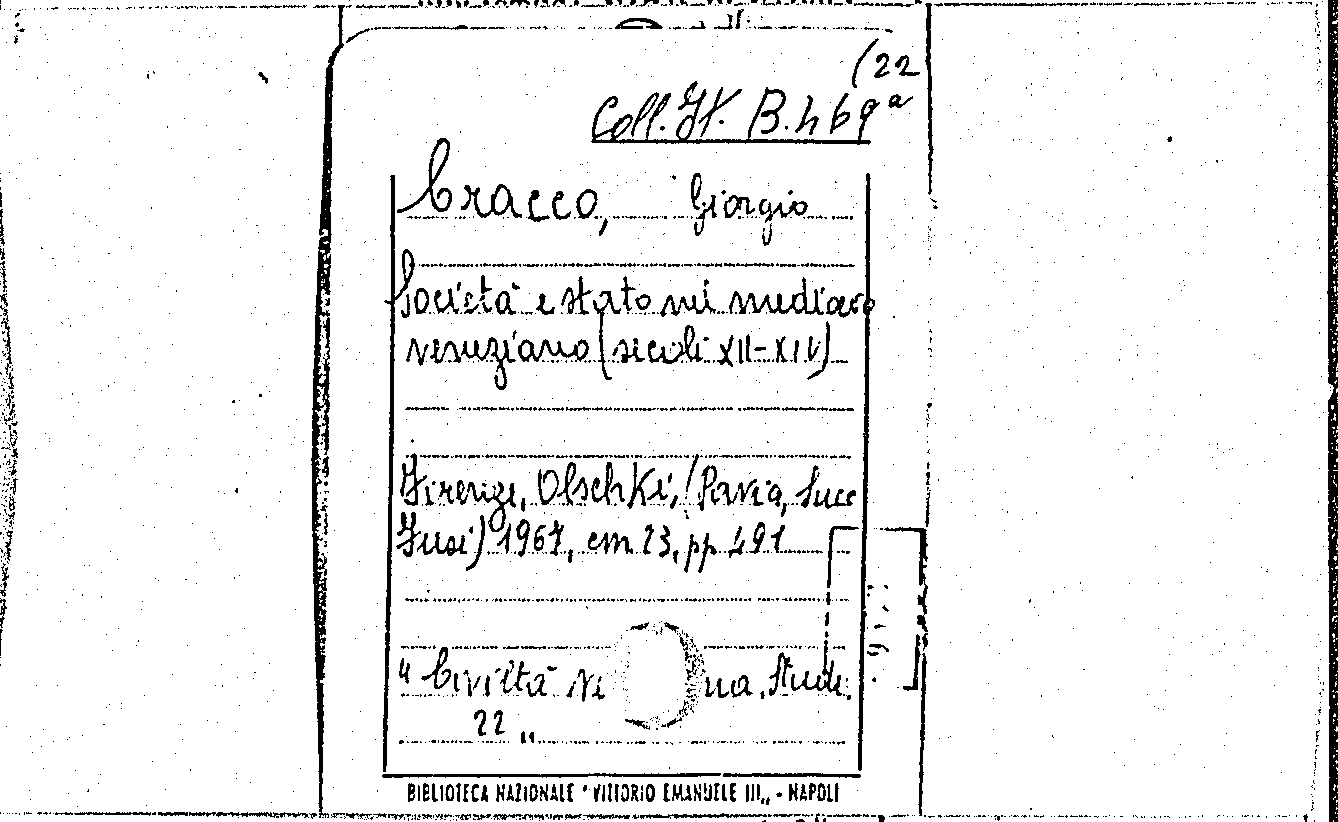 (22
Coll. It. B. 469ª
Cracco, Giorgio
Società e stato nel medioevo
veneziano (secoli XII-XIV)
Firenze, Olschki, (Pavia, Succ
Fusi) 1967, cm 23, pp 491
"Civiltà ve na. Studi.
22"
BIBLIOTECA NAZIONALE "VITTORIO EMANUELE III" - NAPOLI